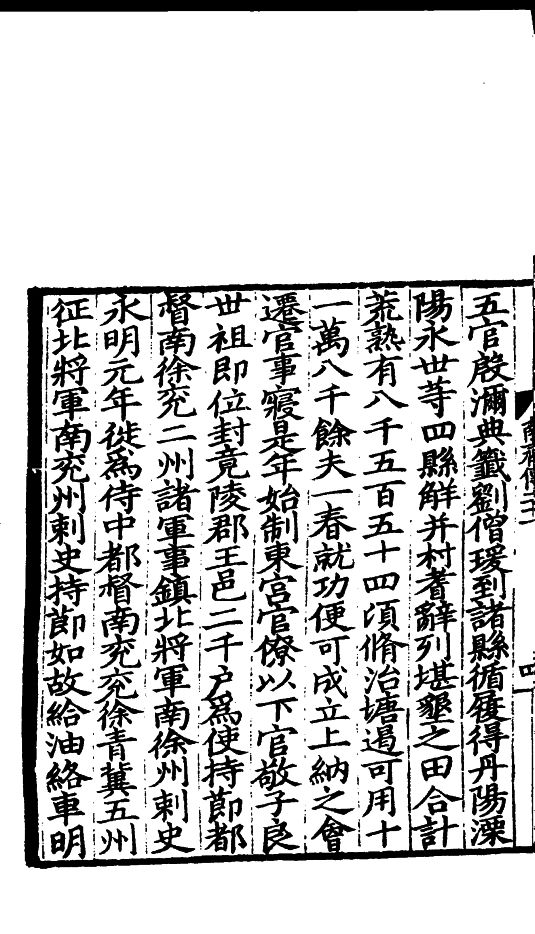 南齊傳二十一
四
五官殷濔典籤劉僧瑗到諸縣循履得丹陽溧
陽永世䓁四縣觧并村耆辭列堪墾之田合計
荒熟有八千五百五十四頃脩治塘遏可用十
一萬八千餘夫一春就功便可成立上納之會
遷官事寢是年始制東宫官僚以下官敬子良
世祖即位封竟陵郡王邑二千户爲使持節都
督南徐兖二州諸軍事鎮北將軍南徐州刺史
永明元年徙爲侍中都督南兖兖徐青冀五州
征北將軍南兖州刺史持節如故給油絡車明